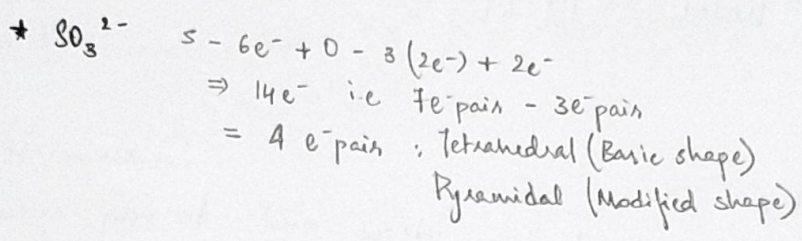 * SO₃²⁻ S - 6e⁻ + O - 3(2e⁻) + 2e⁻
⇒ 14e⁻ i.e 7e⁻pair - 3e⁻pair
= 4 e⁻pair ; Tetrahedral (Basic shape)
Pyramidal (Modified shape)